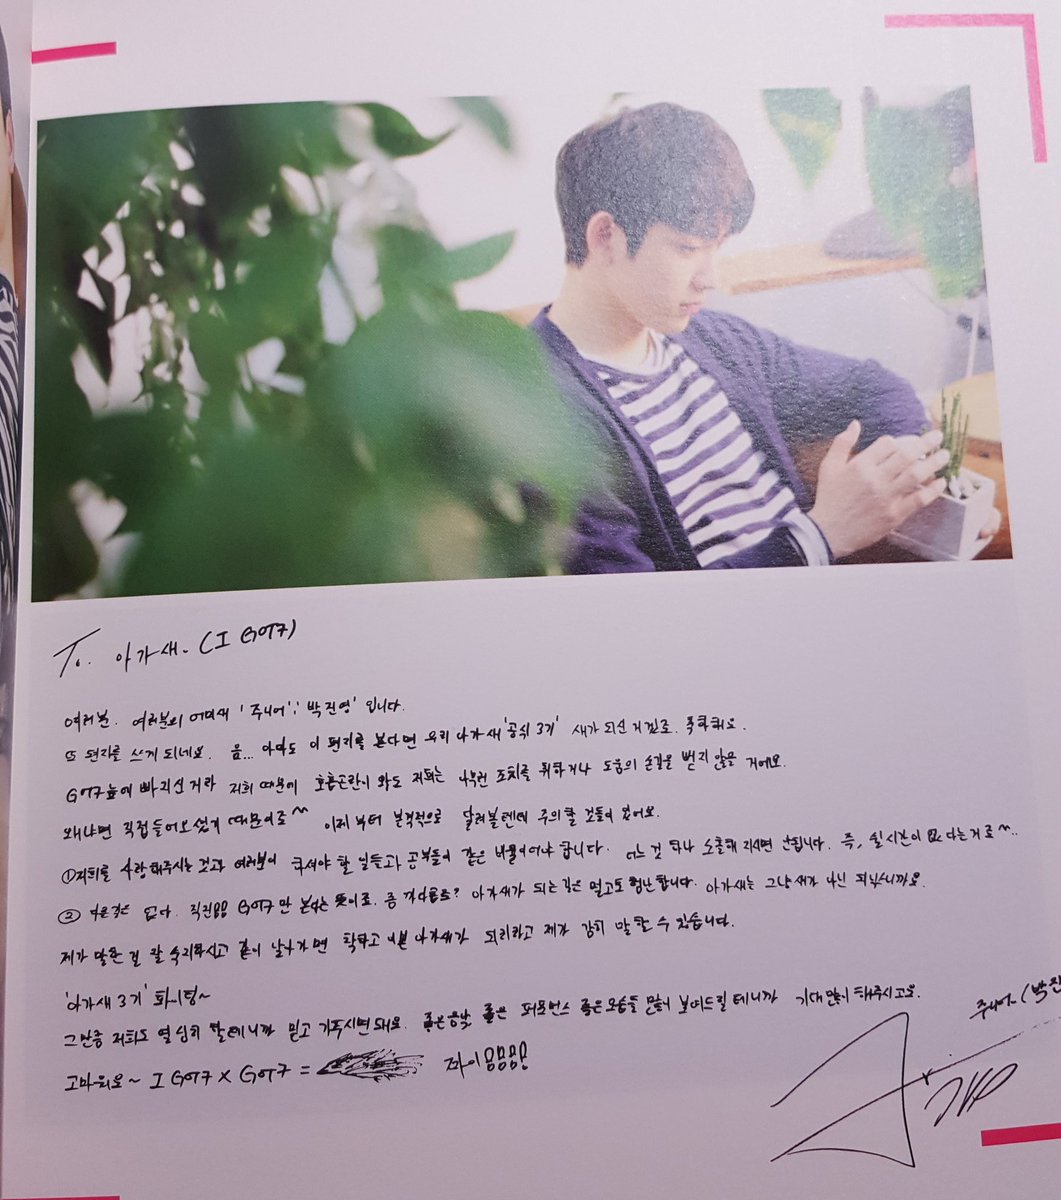 To. 아가새. (I GOT7)
여러분. 여러분의 어미새 '주니어' '박진영' 입니다.
또 편지를 쓰게 되네요. 음... 아마도 이 편지를 본다면 우리 아가새 '공식 3기' 새가 되신 거겠죠. 축하해요.
GOT7 늪에 빠지신거라 저희 때문에 호흡곤란이 와도 저희는 어떤 조치를 취하거나 도움의 손길을 뻗지 않을 거에요.
왜냐면 직접 들어오셨기 때문이죠^^ 이제부터 본격적으로 달려볼텐데 주의할 것들이 있어요.
①저희를 사랑해주시는 것과 여러분이 하셔야 할 일들과 공부들이 같은 비율이어야 합니다. 어느 것 하나 소홀해 지시면 안됩니다. 즉, 쉴시간이 없다는거죠^^..
② 다른길은 없다. 직진!!! GOT7만 본다는 뜻이죠. 아가새가 되는 길은 멀고도 험난합니다. 아가새는 그냥 새가 아닌
제가 말한 걸 잘 숙지하시고 같이 날다가면 착하고 이쁜 아가새가 되리라고 제가 감히 말할 수 있습니다.
'아가새 3기' 화이팅~
그만큼 저희도 열심히 할테니까 믿고 가주시면 돼요. 좋은음악 좋은 퍼포먼스 좋은모습들 많이 보여드릴 테니까 기대 많이 해주시고요.
고마워요~ I GOT7 X GOT7 = 화이링!!!!
주니어 (박진
JR